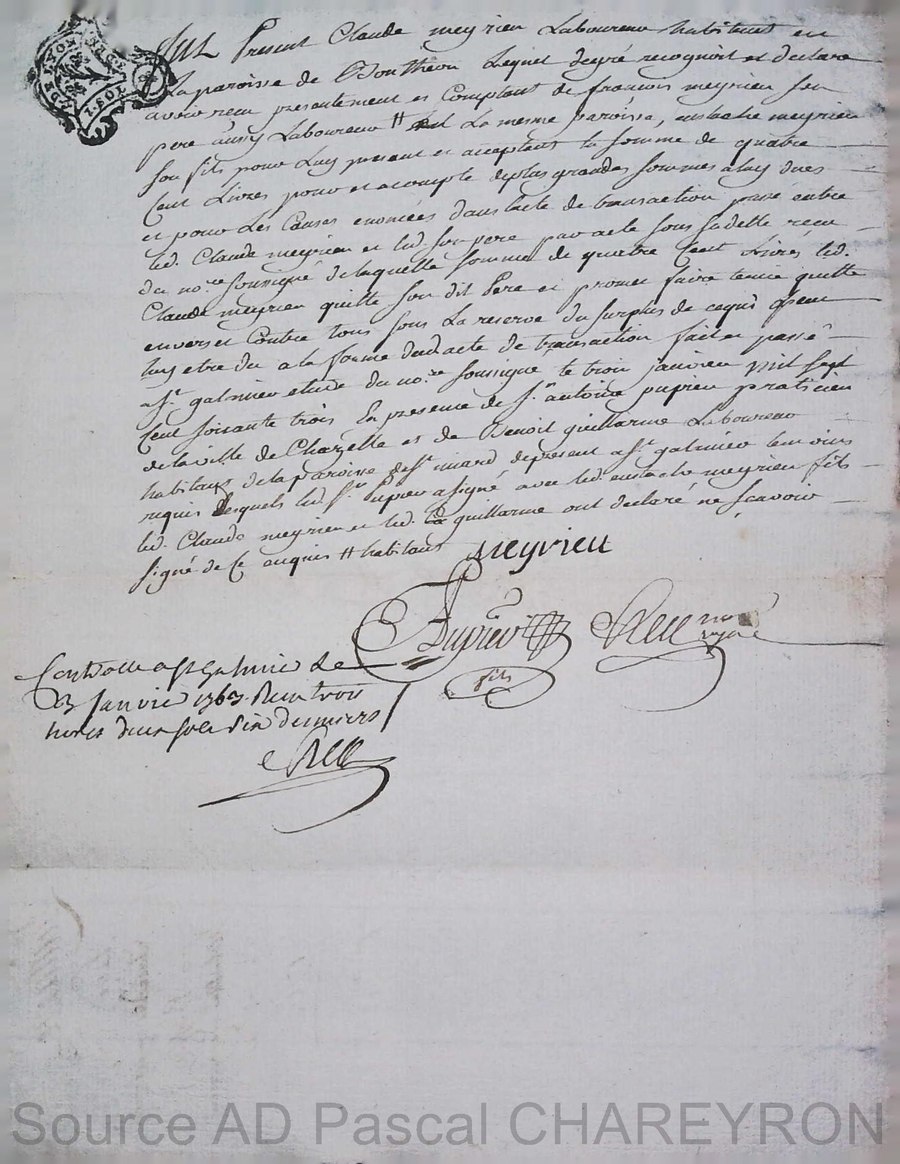 Fut Present Claude meyrieu Laboureur habitant en
La paroisse de Bouthéon Lequel degré recognoit et declare
avoir recu presentement et Comptant de francois meyrieu son
pere aussy Laboureur # La mesme paroisse, eustache meyrieu
son fils pour Luy present et acceptant la somme de quatre
Cent Livres pour et acompte de plus grandes sommes a luy dues
et pour Les Causes enoncées dans lacte de transaction passé entre
led. Claude meyrieu et led. son pere par acte sous sa datte recu
du no.re soussigné de laquelle somme de quatre Cent Livres led.
Claude meyrieu quitte son dit Pere et promet faire tenir quitte
envers et Contre tous sous La reserve du surplus de ce qui peut
luy etre du a la forme dud acte de transaction fait et passé
a S.t galmier etude du no.re soussigné le trois janvier mil sept
Cent soixante trois En presence de S.r antoine pupier praticien
de la ville de Chazelle et de Benoit guillarme Laboureur
habitant de la paroisse de St medard de present a St galmier temoins
requis Desquels led. S.r pupier a signé avec led. eustache meyrieu fils
led. Claude meyrieu et led. guillarme ont declaré ne scavoir
signé de Ce enquis # habitant
Meyrieu
Pupier
fils
no.re
royal
Controllé a St Galmier le
3 Janvier 1763. Recu trois
livres dix sols six deniers
Source AD Pascal CHAREYRON